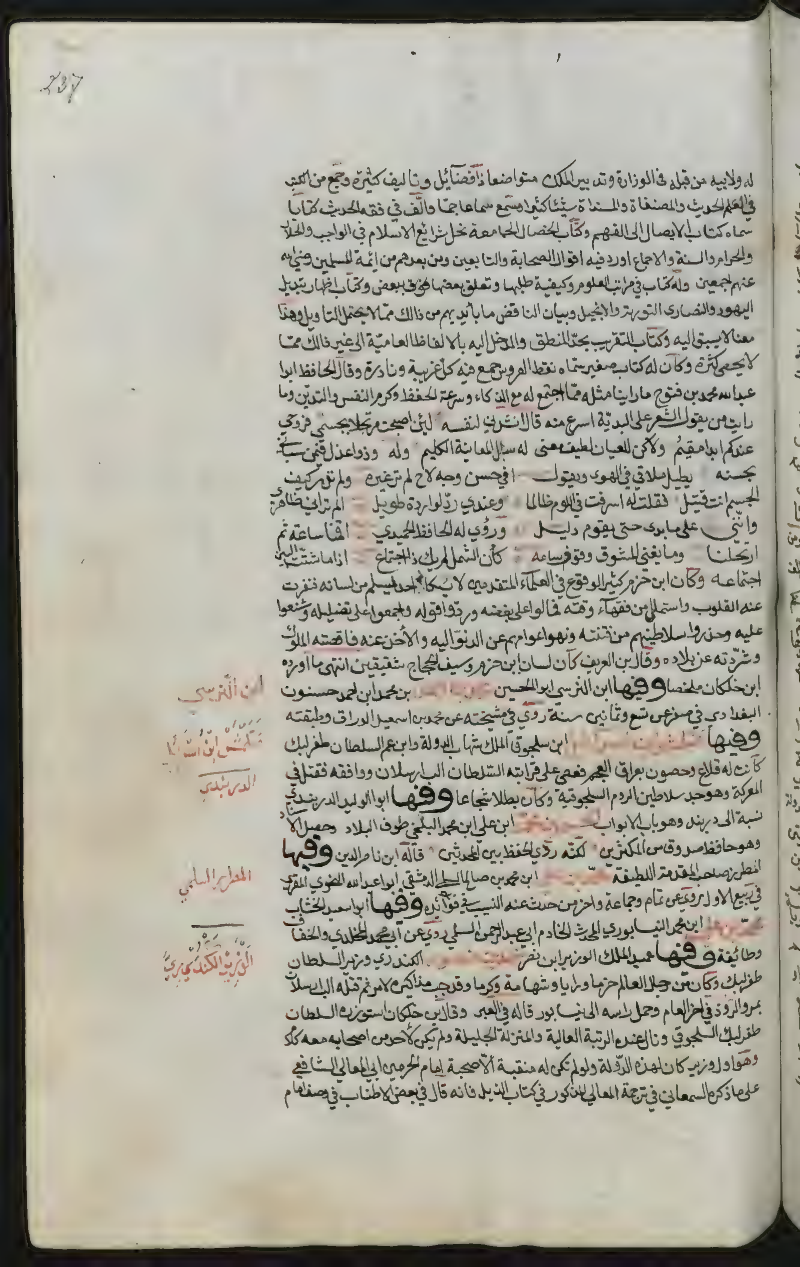 237
له ولابيه من قبله في الوزارة وتدبير الملك متواضعا ذا فضائل وتاليف كثيرة وجمع من الكتب
في العلم الحديث والمصنفاة والمسنداة شيئا كثيرا وسمع سماعا جما والف في فقه الحديث كتابا
سماه كتاب الايصال الى الفهم وكتاب الخصال الجامعة نحل شرايع الاسلام في الواجب والحلال
والحرام والسنة والاجماع اورد فيه اقوال الصحابة والتابعين ومن بعدهم من ائمة المسلمين رضي الله
عنهم اجمعين وله كتاب في مراتب العلوم وكيفية طلبها وتعلق بعضها ببعض وكتاب اظهار تبديل
اليهود والنصارى التورية والانجيل وبيان الناقض ما بأيديهم من ذالك ممّا لا يحتمل التاويل وهذا
معنا لا يسبق اليه وكتاب التقريب بحدّ المنطق والمدخل اليه بالالفاظ العاميّة الى غير ذالك ممّا
لا يحصى كثرة وكان له كتاب صغير سمّاه نقط العروس جمع فيه كل غريبة ونادرة وقال الحافظ ابو
عبد الله محمد بن فتوح ما راينا مثله ممّا اجتمع له مع الذكاء وسرعة الحفظ وكرم النفس والتديّن وما
رايت من يقول الشعر على البديّة اسرع منه قال انشدني لنفسه لئن اصبحت مرتحلا بجسمي فروحي
عندكم ابدا مقيم ولاكن للعيان لطيف معنى له سال المعاينة الكليم وله وذو اعذل فيمن سباني
بحسنه يطيل ملامي في الهوى ويقول افي حسن وجه لاح لم تر غيره ولم تدر كيف
الجسم انت قتيل فقلت له اسرفت في اللوم ظالما وعندي ردّ لو اردة طويل الم تر اني ظاهري
وانني على ما بدى حتى يقوم دليل وروى له الحافظ الحميدي اقمنا ساعة ثم
ارتحلنا وما يغني المشوق وقوف ساعه كأن الشمل لم يك ذا اجتماع اذا ما شتت البين
اجتماعه وكان ابن حزم كثير الوقوع في العلماء المتقدمين لا يكاد احد يسلم من لسانه فنفرت
عنه القلوب واستهدف من فقهاء وقته فمالوا على بغضه وردوا قوله واجمعوا على تضليله وشنعوا
عليه وحذروا سلاطينهم من فتنته ونهوا عوامهم عن الدنو اليه والأخذ عنه فاقصته الملوك
وشردته عن بلاده وقال بن العريف كان لسان ابن حزم وسيف الحجاج شقيقين انتهى ما اورده
ابن خلكان ملخصا وفيها ابن النرسي ابو الحسين بن محمد ابن احمد حسنون
البغدادي في صفر عن تسع وثمانين سنة روى في مشيخته عن محمد بن اسمعيل الوراق وطبقته
وفيها ابن سلجوق الملك شهاب الدولة وابن عم السلطان طغرلبك
كانت له قلاع وحصون بعراق العجم فعصى على قرابته السلطان الب ارسلان وواقعه فقتل في
المعركة وهو جد سلاطين الروم السلجوقية وكان بطلا شجاعا وفيها ابو الوليد الدربندي
نسبة الى دربند وهو باب الابواب ابن علي ابن محمد البلخي طوف البلاد وحصل الاسناد
وهو حافظ صدوق من المكثرين لكنّه ردي الحفظ بين المحدثين قاله ابن ناصر الدين وفيها
صاحب المقدمة اللطيفة ابن محمد بن صالح السلمي الدمشقي ابو عبد الله النحوي المقري
في ربيع الاول روى عن تمام وجماعة واخر من حدث عنه النسيب في فوائده وفيها ابو سعيد الخشاب
ابن محمد النيسابوري المحدث الخادم ابي عبد الرحمن السلمي روى عن ابي محمد المخلدي والخفاف
وطائفة وفيها عميد الملك الوزير ابن نصر الكندري وزير السلطان
طغرلبك وكان من رجال العالم حزما ورايا وشهامة وكرما وقد جب مذاكيره لامر ثم قتله الب ارسلان
بمرو الروذ في اخر العام وحمل راسه الى نيسابور قاله في العبر وقال بن خلكان استوزره السلطان
طغرلبك السلجوقي ونال عنده الرتبة العالية والمنزلة الجليلة ولم يكن لاحد من اصحابه معه كلام
وهو اول وزير كان لهذه الدولة ولو لم تكن له منقبة الا صحبة امام الحرمين ابي المعالي الشافعي
على ما ذكره السمعاني في ترجمة المعالي المذكور في كتاب الذيل فانه قال في بعض الاطناب في وصف امام
ابن النرسي
الدربندي
المطرز السلمي
الوزير الكندري